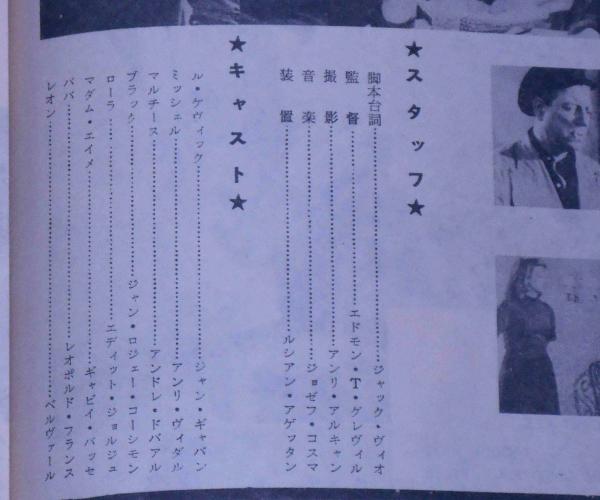 ★スタッフ★
脚本台詞……ジャック・ヴィオ
監督……エドモン・T・グレヴィル
撮影……アンリ・アルキャン
音楽……ジョゼフ・コスマ
装置……ルシアン・アゲッタン
★キャスト★
ル・ケヴィック……ジャン・ギャバン
ミッシェル……アンリ・ヴィダル
マルチース……アンドレ・ドバアル
ブラック……ジャン・ロジェー・コーシモン
ローラ……エディット・ジョルジュ
マダム・エイメ……ギャビイ・バッセ
パパ……レオポルド・フランス
レオン……ベルヴァール